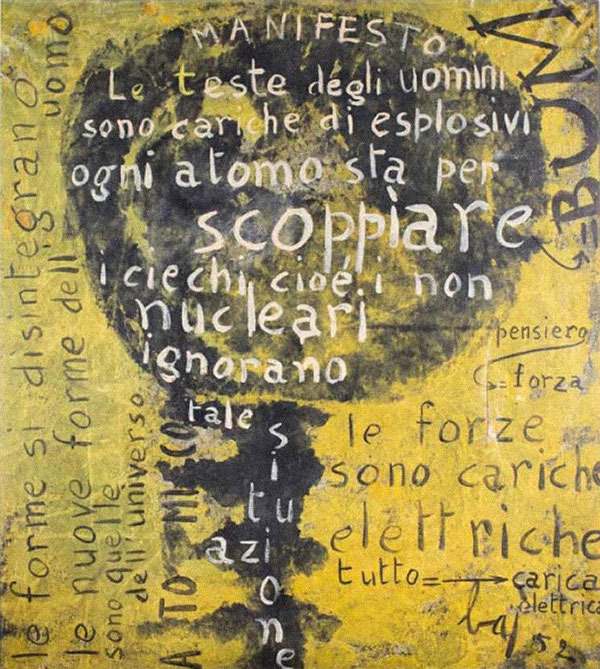 MANIFESTO
Le teste degli uomini
sono cariche di esplosivi
ogni atomo sta per
scoppiàre
i ciechi, cioé i non
nucleari
ignorano
tale
situazione
le forme si disintegrano
le nuove forme dell' uomo
sono quelle
dell' universo
ATOMICO
BUM
pensiero
= forza
le forze
sono cariche
elettriche
tutto = carica
elettrica
baj 52